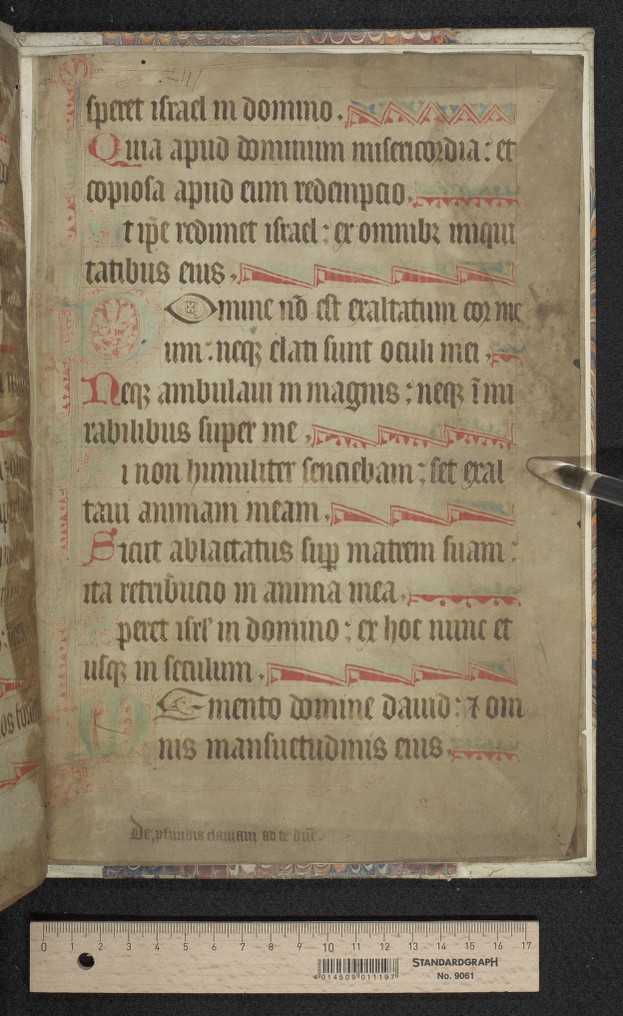 speret israel in domino.
Quia apud dominum misericordia: et
copiosa apud eum redempcio.
Et ip̅e redimet israel: ex omnibꝫ iniqui
tatibus eius.
Domine nō est exaltatum cor me
um: neqꝫ elati sunt oculi mei.
Neqꝫ ambulaui in magnis: neqꝫ ī mi
rabilibus super me.
Si non humiliter senciebam: set exal
taui animam meam.
Sicut ablactatus suꝑ matrem suam:
ita retribucio in anima mea.
Speret isrl̅ in domino: ex hoc nunc et
usqꝫ in seculum.
Memento domine dauid: ⁊ om
nis mansuetudinis eius.
De ꝓfundis clamaui ad te dn̅e.
0 1 2 3 4 5 6 7 8 9 10 11 12 13 14 15 16 17
4 014509 011197
STANDARDGRAPH
No. 9061